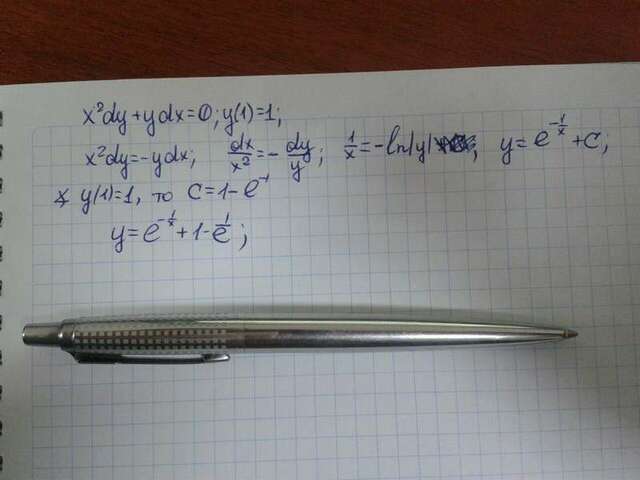 x²dy+ydx=0; y(1)=1;
x²dy=-ydx; dx/x²=-dy/y; 1/x=-ln|y|; y=e^(-1/x)+C;
∡ y(1)=1, то C=1-e⁻¹
y=e^(-1/x)+1-1/e;